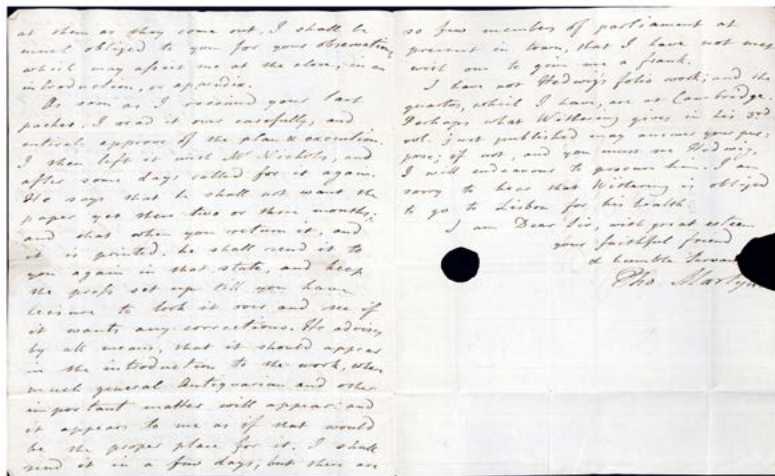 at them as they come out, I shall be
much obliged to you for your observations
which may assist me at the close, in an
introduction, or appendix.
As soon as I received your last
packet, I read it over carefully, and
entirely approve of the plan & execution.
I then left it with Mr Nichols, and
after some days called for it again.
He says that he shall not want the
paper yet these two or three months;
and that when you return it, and
it is printed, he shall send it to
you again in that state, and keep
the press set up till you have
leisure to look it over and see if
it wants any corrections. He advises,
by all means, that it should appear
in the introduction to the work, when
much general Antiquarian and other
important matter will appear: and
it appears to me as if that would
be the proper place for it. I shall
send it in a few days, but there are
so few members of parliament at
present in town, that I have not met
with one to give me a frank.
I have not Hedwig's folio work; and the
quartos, which I have, are at Cambridge.
Perhaps what Withering gives in his 3rd
vol. just published may answer your pur-
pose; if not, and you must see Hedwig,
I will endeavour to procure him. I am
sorry to hear that Withering is obliged
to go to Lisbon for his health.
I am Dear Sir, with great esteem
your faithful friend
& humble Servant
Tho. Martyn